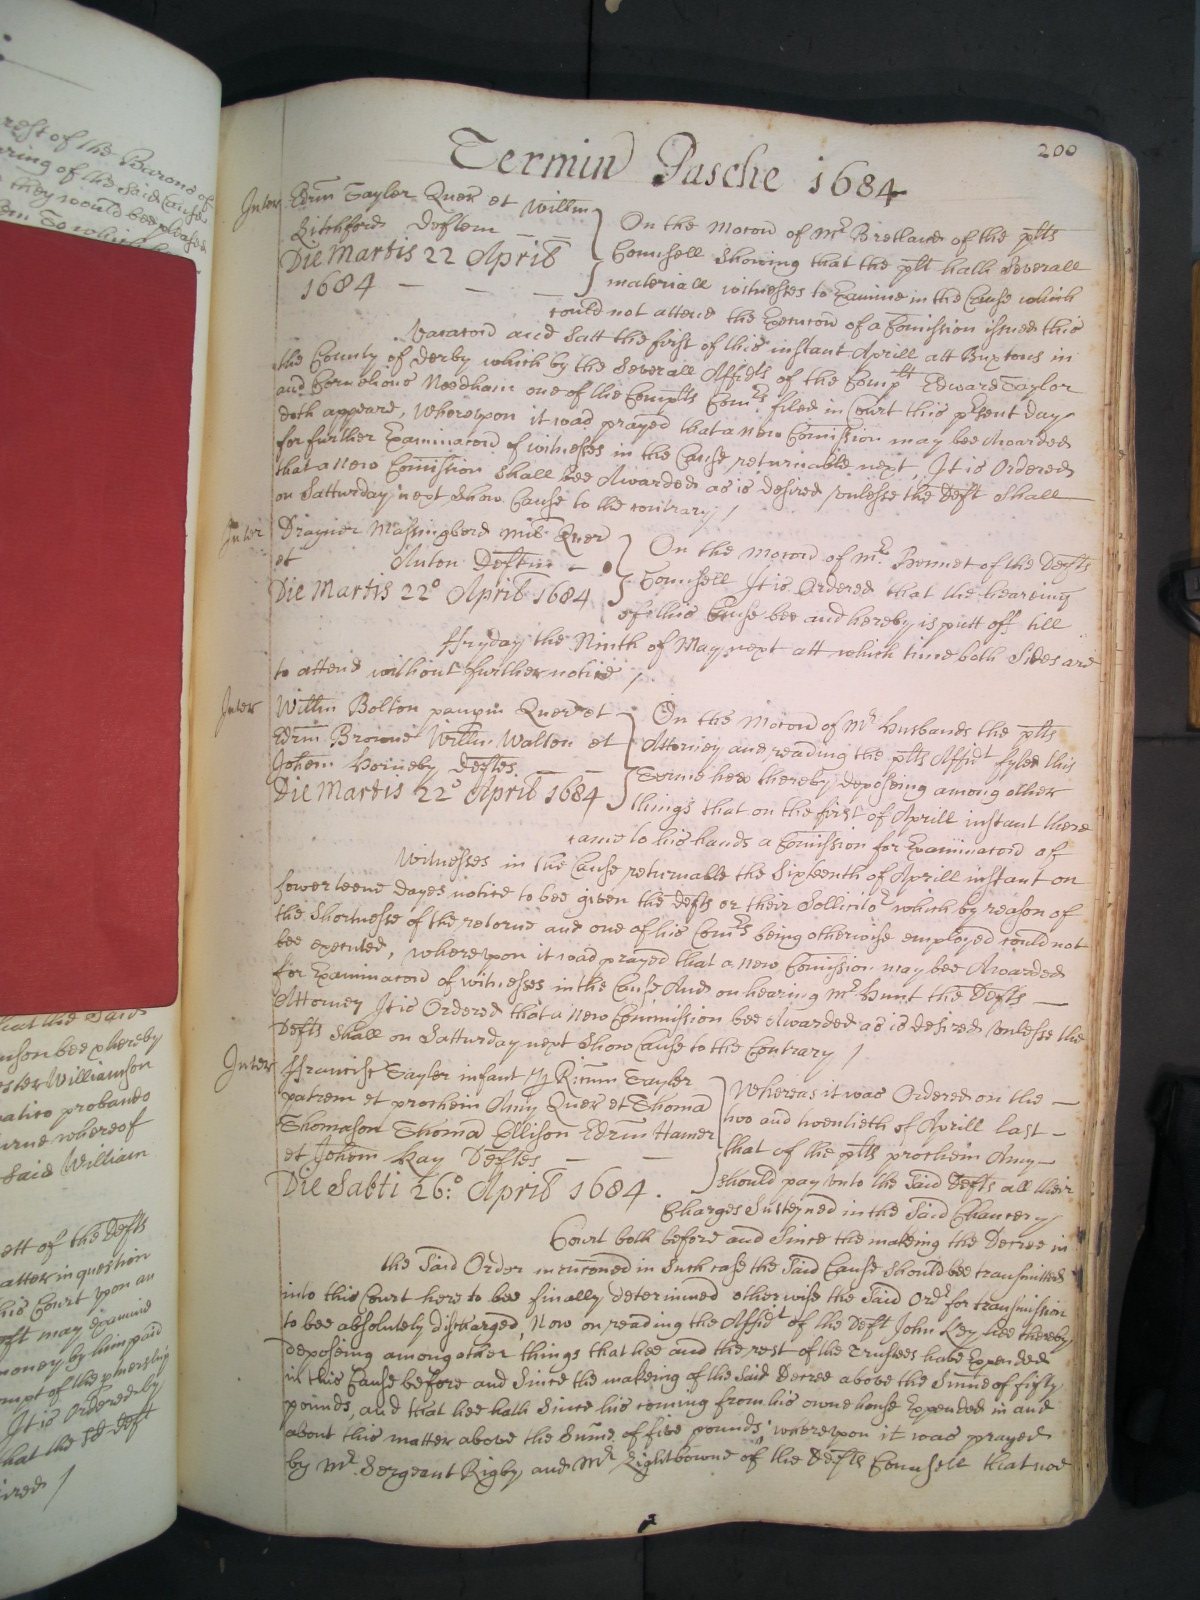 200
Termin Pasche 1684
Inter Edrum Tayler Quer et Willm
Litchford Deftem
Die Martis 22 April
1684
On the Motion of Mr Bretland of the plts
Councell Showing that the plt hath Severall
materiall witnesses to Examine in the Cause which
could not attend the Execucon of a Comission issued this
Vacacon and Satt the first of this instant Aprill att Buxtons in
the County of Derby which by the Severall Affidts of the Complt Edward Taylor
and Cornelious Needham one of the Complts Comrs filed in Court this present day
doth appeare, Whereupon it was prayed that a new Comission may bee Awarded
for further Examinacon of witnesses in the Cause returnable next, It is Ordered
that a new Comission shall bee Awarded as is desired unlesse the Deft shall
on Satturday next Show Cause to the contrary /
Inter Drayner Massingberd mil Quer
et Anton Deftem
Die Martis 22o April 1684
On the Motion of Mr Bennet of the Defts
Councell It is Ordered that the heareing
of this Cause bee and hereby is putt off till
ffryday the Ninth of May next att which time both Sides are
to attend without further notice /
Inter Willm Bolton paupm Quer et
Edrum Browne Willm Walton et
Johem Horneby Deftes
Die Martis 22o April 1684
On the Motion of Mr Husbands the plts
Attorney and reading the plts Affidt fyled this
Terme hee thereby deposeing among other
things that on the first of Aprill instant there
came to his hands a Comission for Examinacon of
Witnesses in the Cause returnable the Sixteenth of Aprill instant on
fowerteene dayes notice to bee given the Defts or their Sollicitor which by reason of
the Shortnesse of the retorne and one of his Comrs being otherwise employed could not
bee executed, whereupon it was prayed that a new Comission may bee Awarded
for Examinacon of witnesses in the Cause And on hearing Mr Hunt the Defts
Attorney It is Ordered that a new Commission bee Awarded as is desired unlesse the
Defts shall on Satturday next Show Cause to the Contrary /
Inter ffrancisc Tayler infant p Ricum Tayler
patrem et prochein Amy Quer et Thoma
Thomason Thoma Ellison Edrum Hamer
et Johem Kay Deftes
Die Sabti 26o April 1684
Whereas it was Ordered on the
two and twentieth of Aprill last
that if the plts prochein Amy
should pay unto the Said Defts all their
Charges Susteyned in the Said Chancery
Court both before and Since the making the Decree in
the Said Order mencioned in Such case the Said Cause should bee transmitted
into this Court here to bee finally determined otherwise the Said Ordr for transmission
to bee absolutely discharged, Now on reading the Affidt of the Deft John Key hee thereby
deposeing among other things that hee and the rest of the Trustees have Expended
in this Cause before and Since the makeing of the Said Decree above the Sume of fifty
pounds, and that hee hath Since his coming from his owne house Expended in and
about this matter above the Sume of five pounds, whereupon it was prayed
by Mr Sergeant Rigby and Mr Lightbowne of the Defts Councell that noe
rest of the Barons of
aring of the Said Cause
they would bee pleased
that the Said
nson bee thereby
ester Williamson
probando
urne whereof
Said William
ett of the Defts
atter in question
his Court upon an
eft may examine
money by him paid
It is Ordered by
that the Sd Deft
ired /